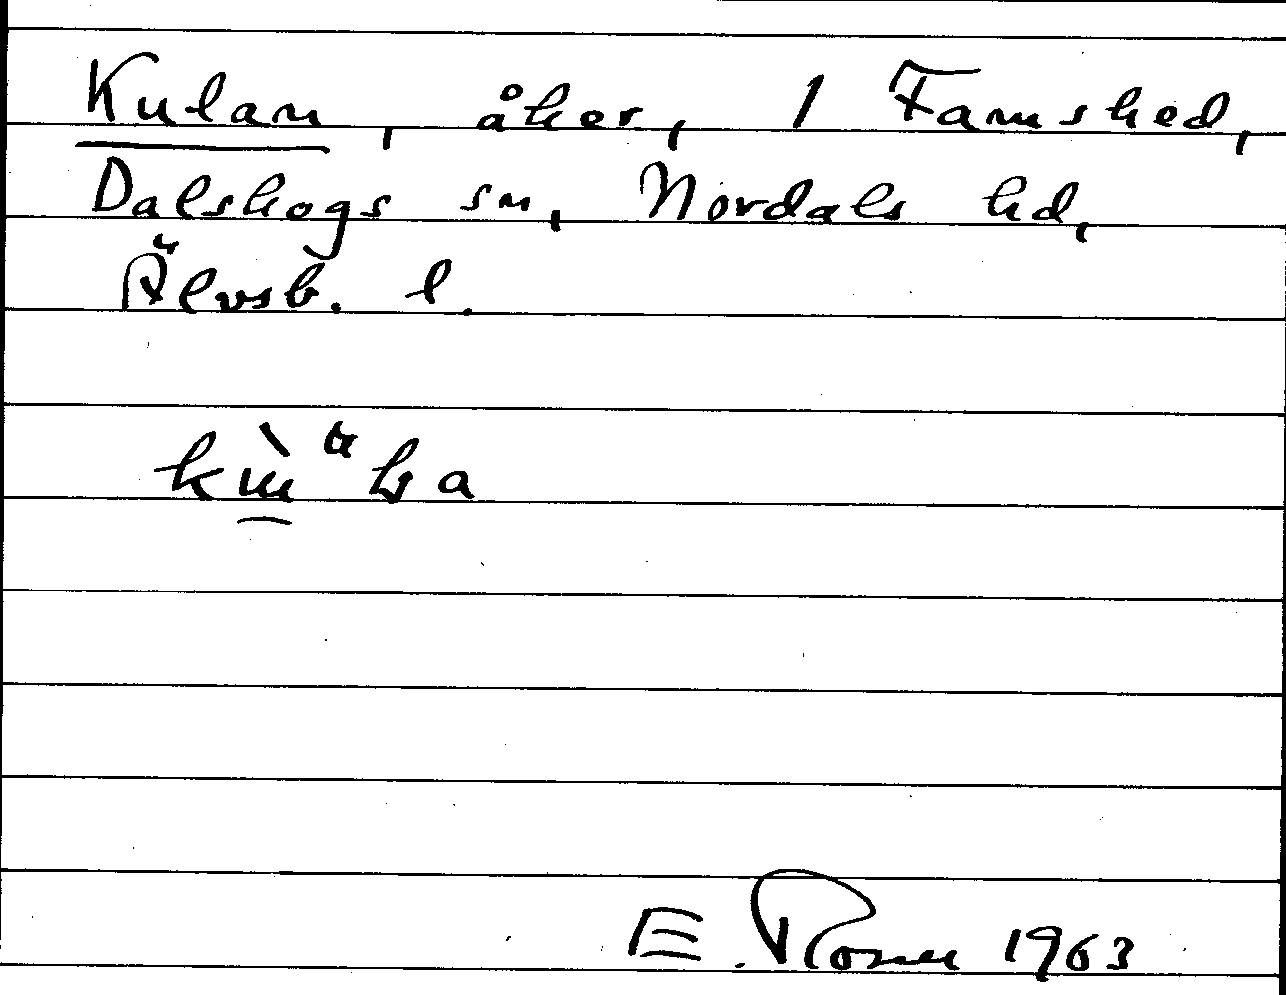 Kulan, åker, 1 Famshed,
Dalskogs sn, Nordals hd,
Älvsb. l.
E. Rosner 1963